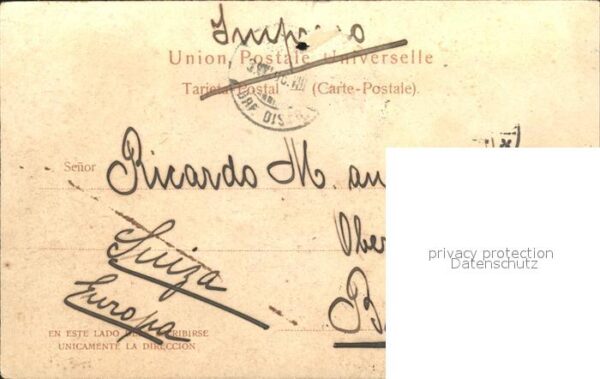 Impreso
Union Postale Universelle
Tarjeta Postal (Carte-Postale).
Señor Ricardo M. an
Ober
Suiza
Europa
B
EN ESTE LADO DEBE ESCRIBIRSE
UNICAMENTE LA DIRECCION
privacy protection
Datenschutz